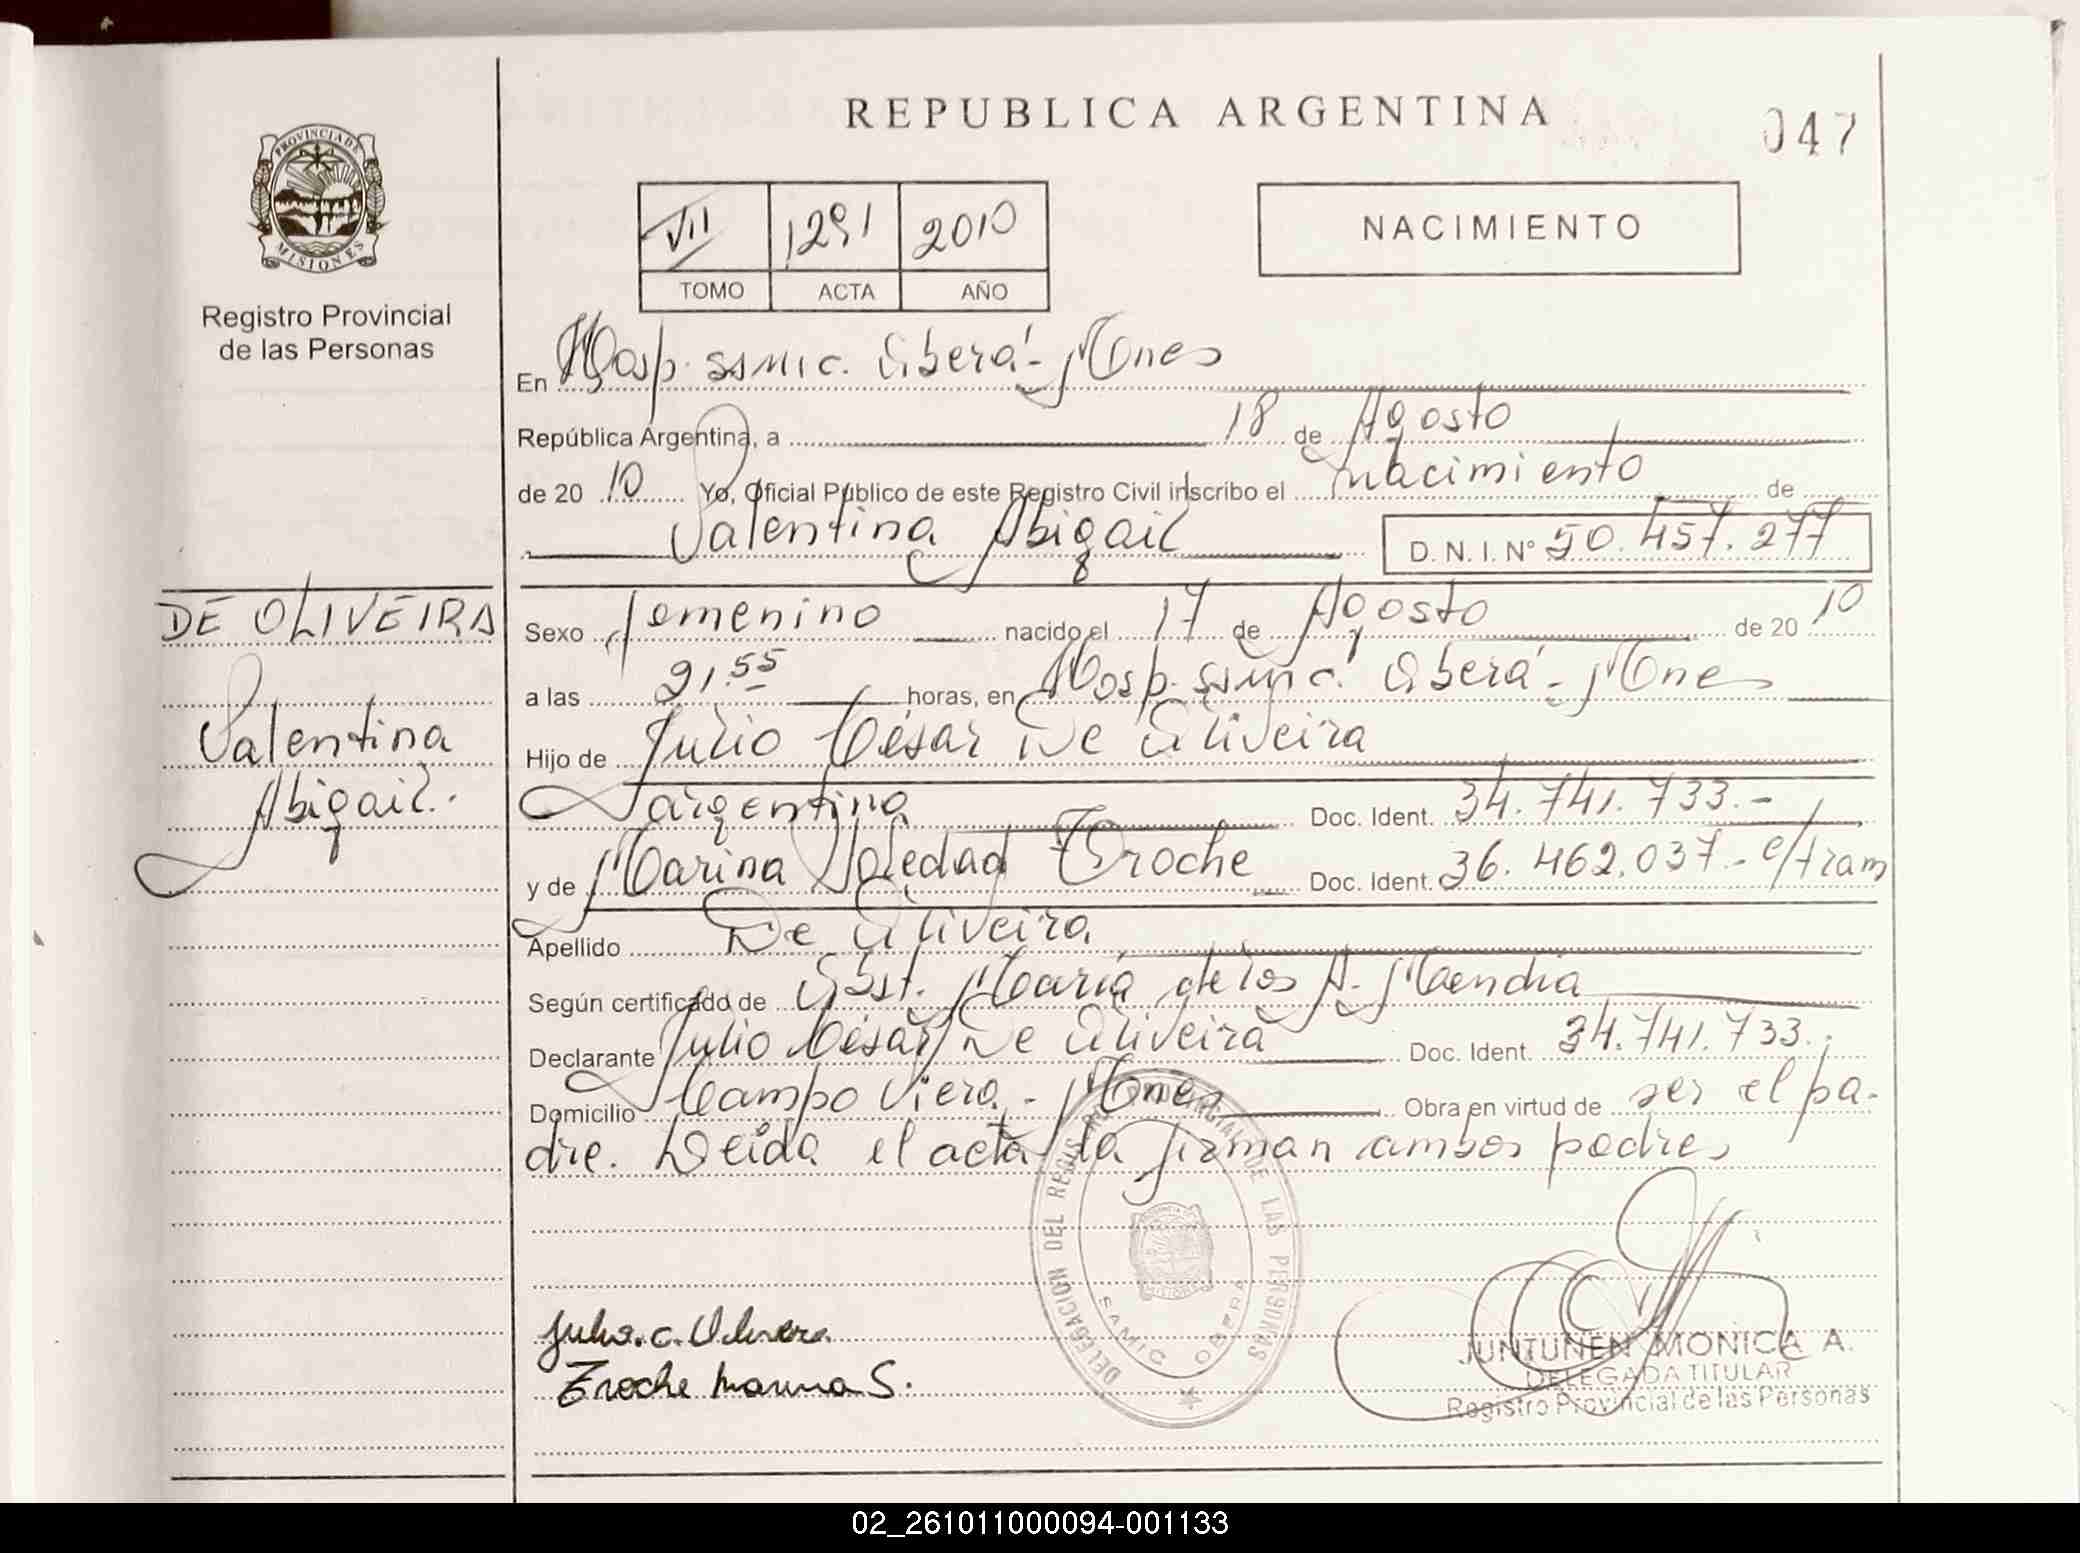 REPUBLICA ARGENTINA
047
PROVINCIA DE MISIONES
Registro Provincial
de las Personas
VII 1291 2010
TOMO ACTA AÑO
NACIMIENTO
En Hosp. SSMIC. Oberá - Mnes
República Argentina, a 18 de Agosto
de 20 10 Yo, Oficial Público de este Registro Civil inscribo el nacimiento de
Valentina Abigail D. N. I. Nº 50.457.277
DE OLIVEIRA
Valentina
Abigail.
Sexo femenino nacido el 17 de Agosto de 20 10
a las 21.55 horas, en Hosp. SSMIC. Oberá - Mnes
Hijo de Julio César De Oliveira
argentina Doc. Ident. 34.741.733.-
y de Marina Soledad Troche Doc. Ident. 36.462.037.- e/tram
Apellido De Oliveira
Según certificado de Obst. María de los A. Mendia
Declarante Julio César De Oliveira Doc. Ident. 34.741.733.-
Domicilio Campo Viera - Mnes Obra en virtud de ser el pa-
dre. Leída el acta la firman ambos padres
DELEGACION DEL REGISTRO PROVINCIAL DE LAS PERSONAS
SAMIC OBERA
Julio. C. Olivera
Troche Marina S.
JUNTUNEN MONICA A.
DELEGADA TITULAR
Registro Provincial de las Personas
02_261011000094-001133